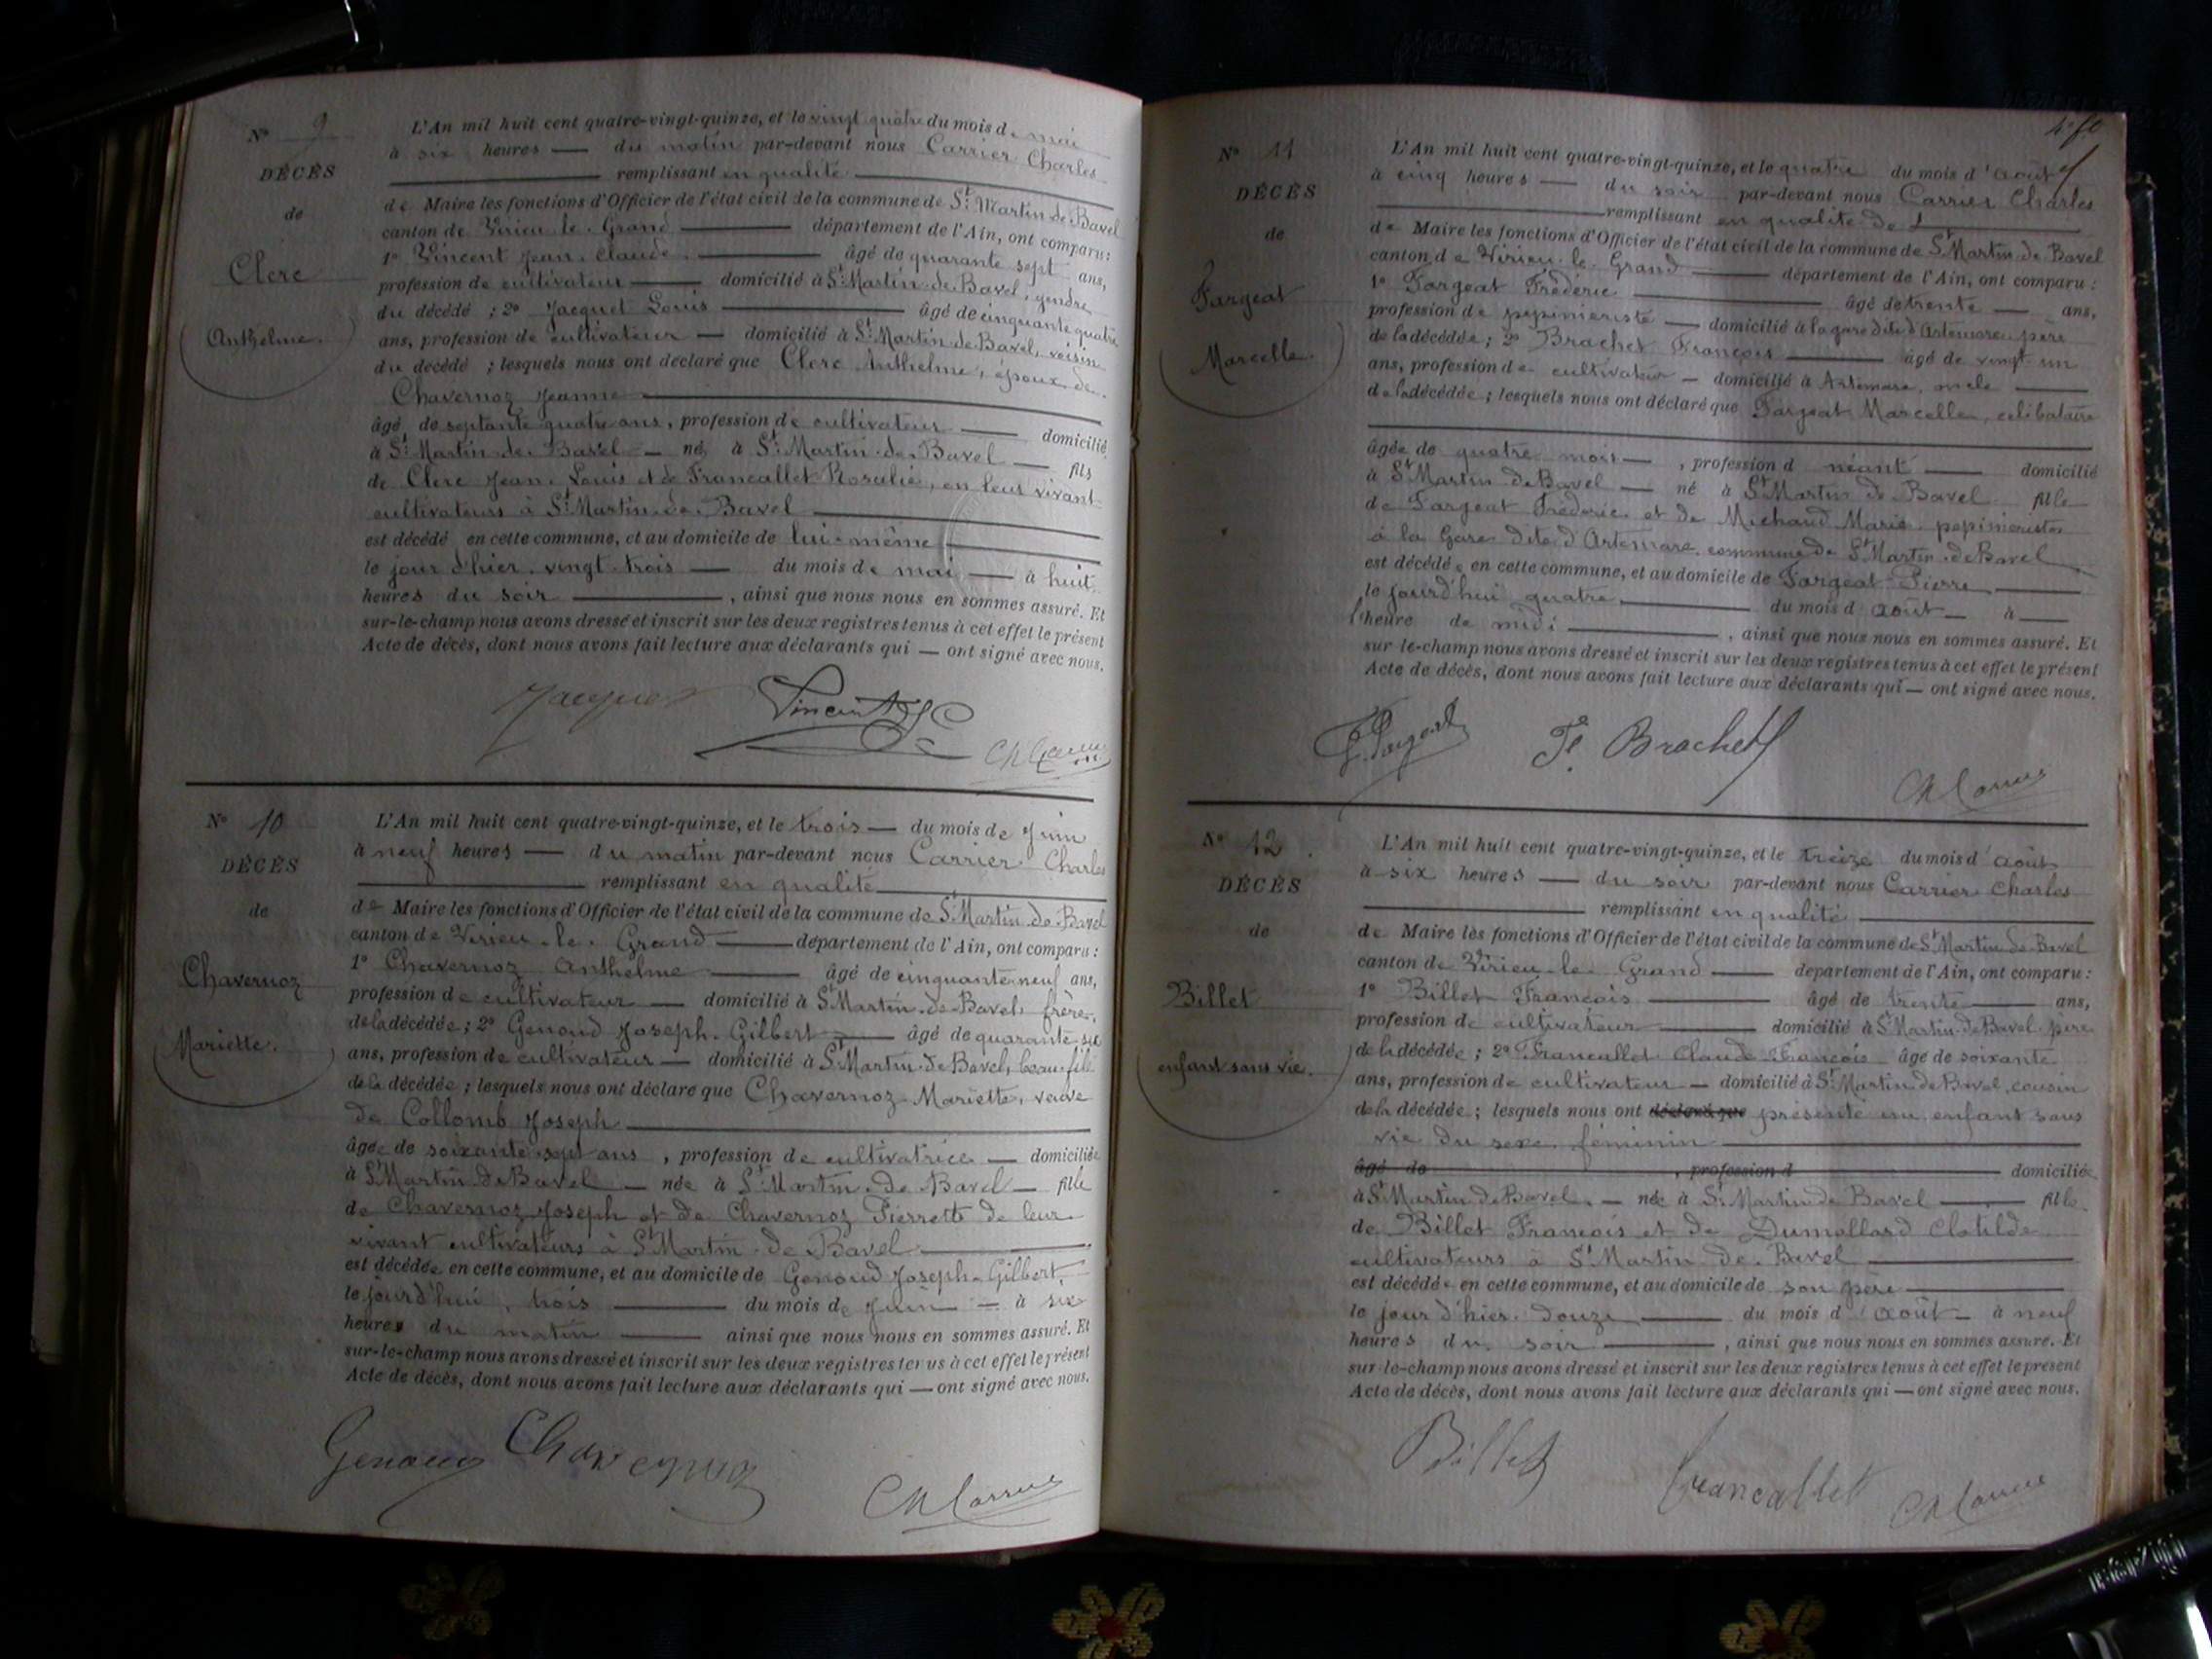 N° 9
DÉCÈS
de
Clerc
Anthelme.
L'An mil huit cent quatre-vingt-quinze, et le vingt quatre du mois de mai
à six heures — du matin par-devant nous Carrier Charles
remplissant en qualité
de Maire les fonctions d'Officier de l'état civil de la commune de St Martin de Bavel
canton de Virieu-le-Grand — département de l'Ain, ont comparu:
1° Vincent Jean Claude — âgé de quarante sept ans,
profession de cultivateur — domicilié à St Martin de Bavel, gendre
du décédé ; 2° Jacquet Louis — âgé de cinquante quatre
ans, profession de cultivateur — domicilié à St Martin de Bavel, voisin
du décédé ; lesquels nous ont déclaré que Clerc Anthelme, époux de
Chavernoz Jeanne
âgé de septante quatre ans, profession de cultivateur — domicilié
à St Martin de Bavel — né à St Martin de Bavel — fils
de Clerc Jean Louis et de Francallet Rosalie, en leur vivant
cultivateurs à St Martin de Bavel
est décédé en cette commune, et au domicile de lui-même
le jour d'hier vingt trois — du mois de mai — à huit
heures du soir — , ainsi que nous nous en sommes assuré. Et
sur-le-champ nous avons dressé et inscrit sur les deux registres tenus à cet effet le présent
Acte de décès, dont nous avons fait lecture aux déclarants qui — ont signé avec nous.
Jacquet Vincent Ch Carrier
N° 10
DÉCÈS
de
Chavernoz
Mariette.
L'An mil huit cent quatre-vingt-quinze, et le trois — du mois de Juin
à neuf heures — du matin par-devant nous Carrier Charles
remplissant en qualité
de Maire les fonctions d'Officier de l'état civil de la commune de St Martin de Bavel
canton de Virieu-le-Grand — département de l'Ain, ont comparu :
1° Chavernoz Anthelme — âgé de cinquante neuf ans,
profession de cultivateur — domicilié à St Martin de Bavel, frère
de la décédée ; 2° Genoud Joseph Gilbert — âgé de quarante six
ans, profession de cultivateur — domicilié à St Martin de Bavel, beau-fils
de la décédée ; lesquels nous ont déclaré que Chavernoz Mariette, veuve
de Collomb Joseph
âgée de soixante sept ans , profession de cultivatrice — domiciliée
à St Martin de Bavel — née à St Martin de Bavel — fille
de Chavernoz Joseph et de Chavernoz Pierrette de leur
vivant cultivateurs à St Martin de Bavel
est décédée en cette commune, et au domicile de Genoud Joseph-Gilbert,
le jourd'hui, trois — du mois de Juin — à six
heures du matin — ainsi que nous nous en sommes assuré. Et
sur-le-champ nous avons dressé et inscrit sur les deux registres tenus à cet effet le présent
Acte de décès, dont nous avons fait lecture aux déclarants qui — ont signé avec nous.
Genoud Chavernoz
Ch Carrier
N° 11
DÉCÈS
de
Fargeat
Marcelle.
L'An mil huit cent quatre-vingt-quinze, et le quatre du mois d'août
à cinq heures — du soir par-devant nous Carrier Charles
remplissant en qualité de
de Maire les fonctions d'Officier de l'état civil de la commune de St Martin de Bavel
canton de Virieu-le-Grand — département de l'Ain, ont comparu :
1° Fargeat Frédéric — âgé de trente — ans,
profession de pépiniériste — domicilié à la gare dite d'Artemare, père
de la décédée ; 2° Brachet François — âgé de vingt un
ans, profession de cultivateur — domicilié à Artemare, oncle
de la décédée ; lesquels nous ont déclaré que Fargeat Marcelle, célibataire
âgée de quatre mois — , profession d néant — domicilié
à St Martin de Bavel — né à St Martin de Bavel fille
de Fargeat Frédéric et de Michaud Marie pépiniéristes
à la Gare dite d'Artemare, commune de St Martin de Bavel
est décédée en cette commune, et au domicile de Fargeat Pierre
le jourd'hui quatre — du mois d'août — à —
heure de midi — , ainsi que nous nous en sommes assuré. Et
sur-le-champ nous avons dressé et inscrit sur les deux registres tenus à cet effet le présent
Acte de décès, dont nous avons fait lecture aux déclarants qui — ont signé avec nous.
F. Fargeat F. Brachet
Ch Carrier
N° 12
DÉCÈS
de
Billet
enfant sans vie.
L'An mil huit cent quatre-vingt-quinze, et le treize du mois d'août
à six heures — du soir par-devant nous Carrier Charles
remplissant en qualité
de Maire les fonctions d'Officier de l'état civil de la commune de St Martin de Bavel
canton de Virieu-le-Grand — département de l'Ain, ont comparu :
1° Billet François — âgé de trente — ans,
profession de cultivateur — domicilié à St Martin de Bavel père
de la décédée ; 2° Francallet Claude François âgé de soixante
ans, profession de cultivateur — domicilié à St Martin de Bavel, cousin
de la décédée ; lesquels nous ont déclaré que présenté un enfant sans
vie du sexe féminin
âgé de , profession d domiciliée
à St Martin de Bavel. — née à St Martin de Bavel — fille
de Billet François et de Dumollard Clotilde
cultivateurs à St Martin de Bavel
est décédée en cette commune, et au domicile de son père
le jour d'hier douze — du mois d'août — à neuf
heures du soir — , ainsi que nous nous en sommes assuré. Et
sur-le-champ nous avons dressé et inscrit sur les deux registres tenus à cet effet le présent
Acte de décès, dont nous avons fait lecture aux déclarants qui — ont signé avec nous.
Billet Francallet Ch Carrier